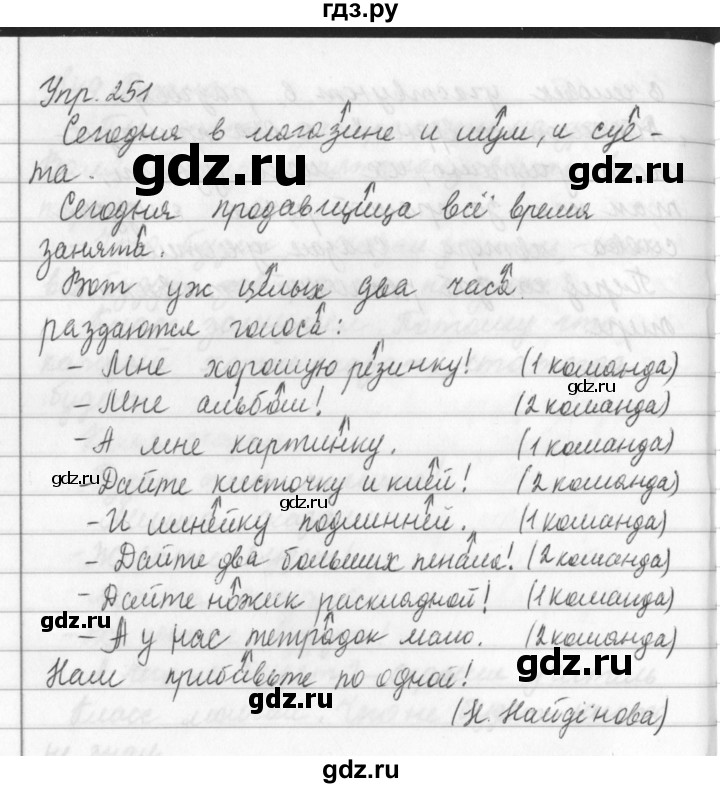 гдз.ру
Упр. 251
Сегодня в магазине и шум, и суе-
та.
gdz.ru
gdz.ru
Сегодня продавщица всё время
занята.
Вот уж целых два часа
раздаются голоса:
- Мне хорошую резинку! (1 команда)
gdz.ru
- Мне альбом! (2 команда)
- А мне картинку. (1 команда)
gdz.ru
- Дайте кисточку и клей! (2 команда)
gdz.ru
- И линейку подлинней. (1 команда)
- Дайте два больших пенала! (2 команда)
- Дайте ножик раскладной! (1 команда)
gdz.ru
- А у нас тетрадок мало. (2 команда)
gdz.ru
Нам прибавьте по одной!
(Н. Найдёнова)
gdz.ru